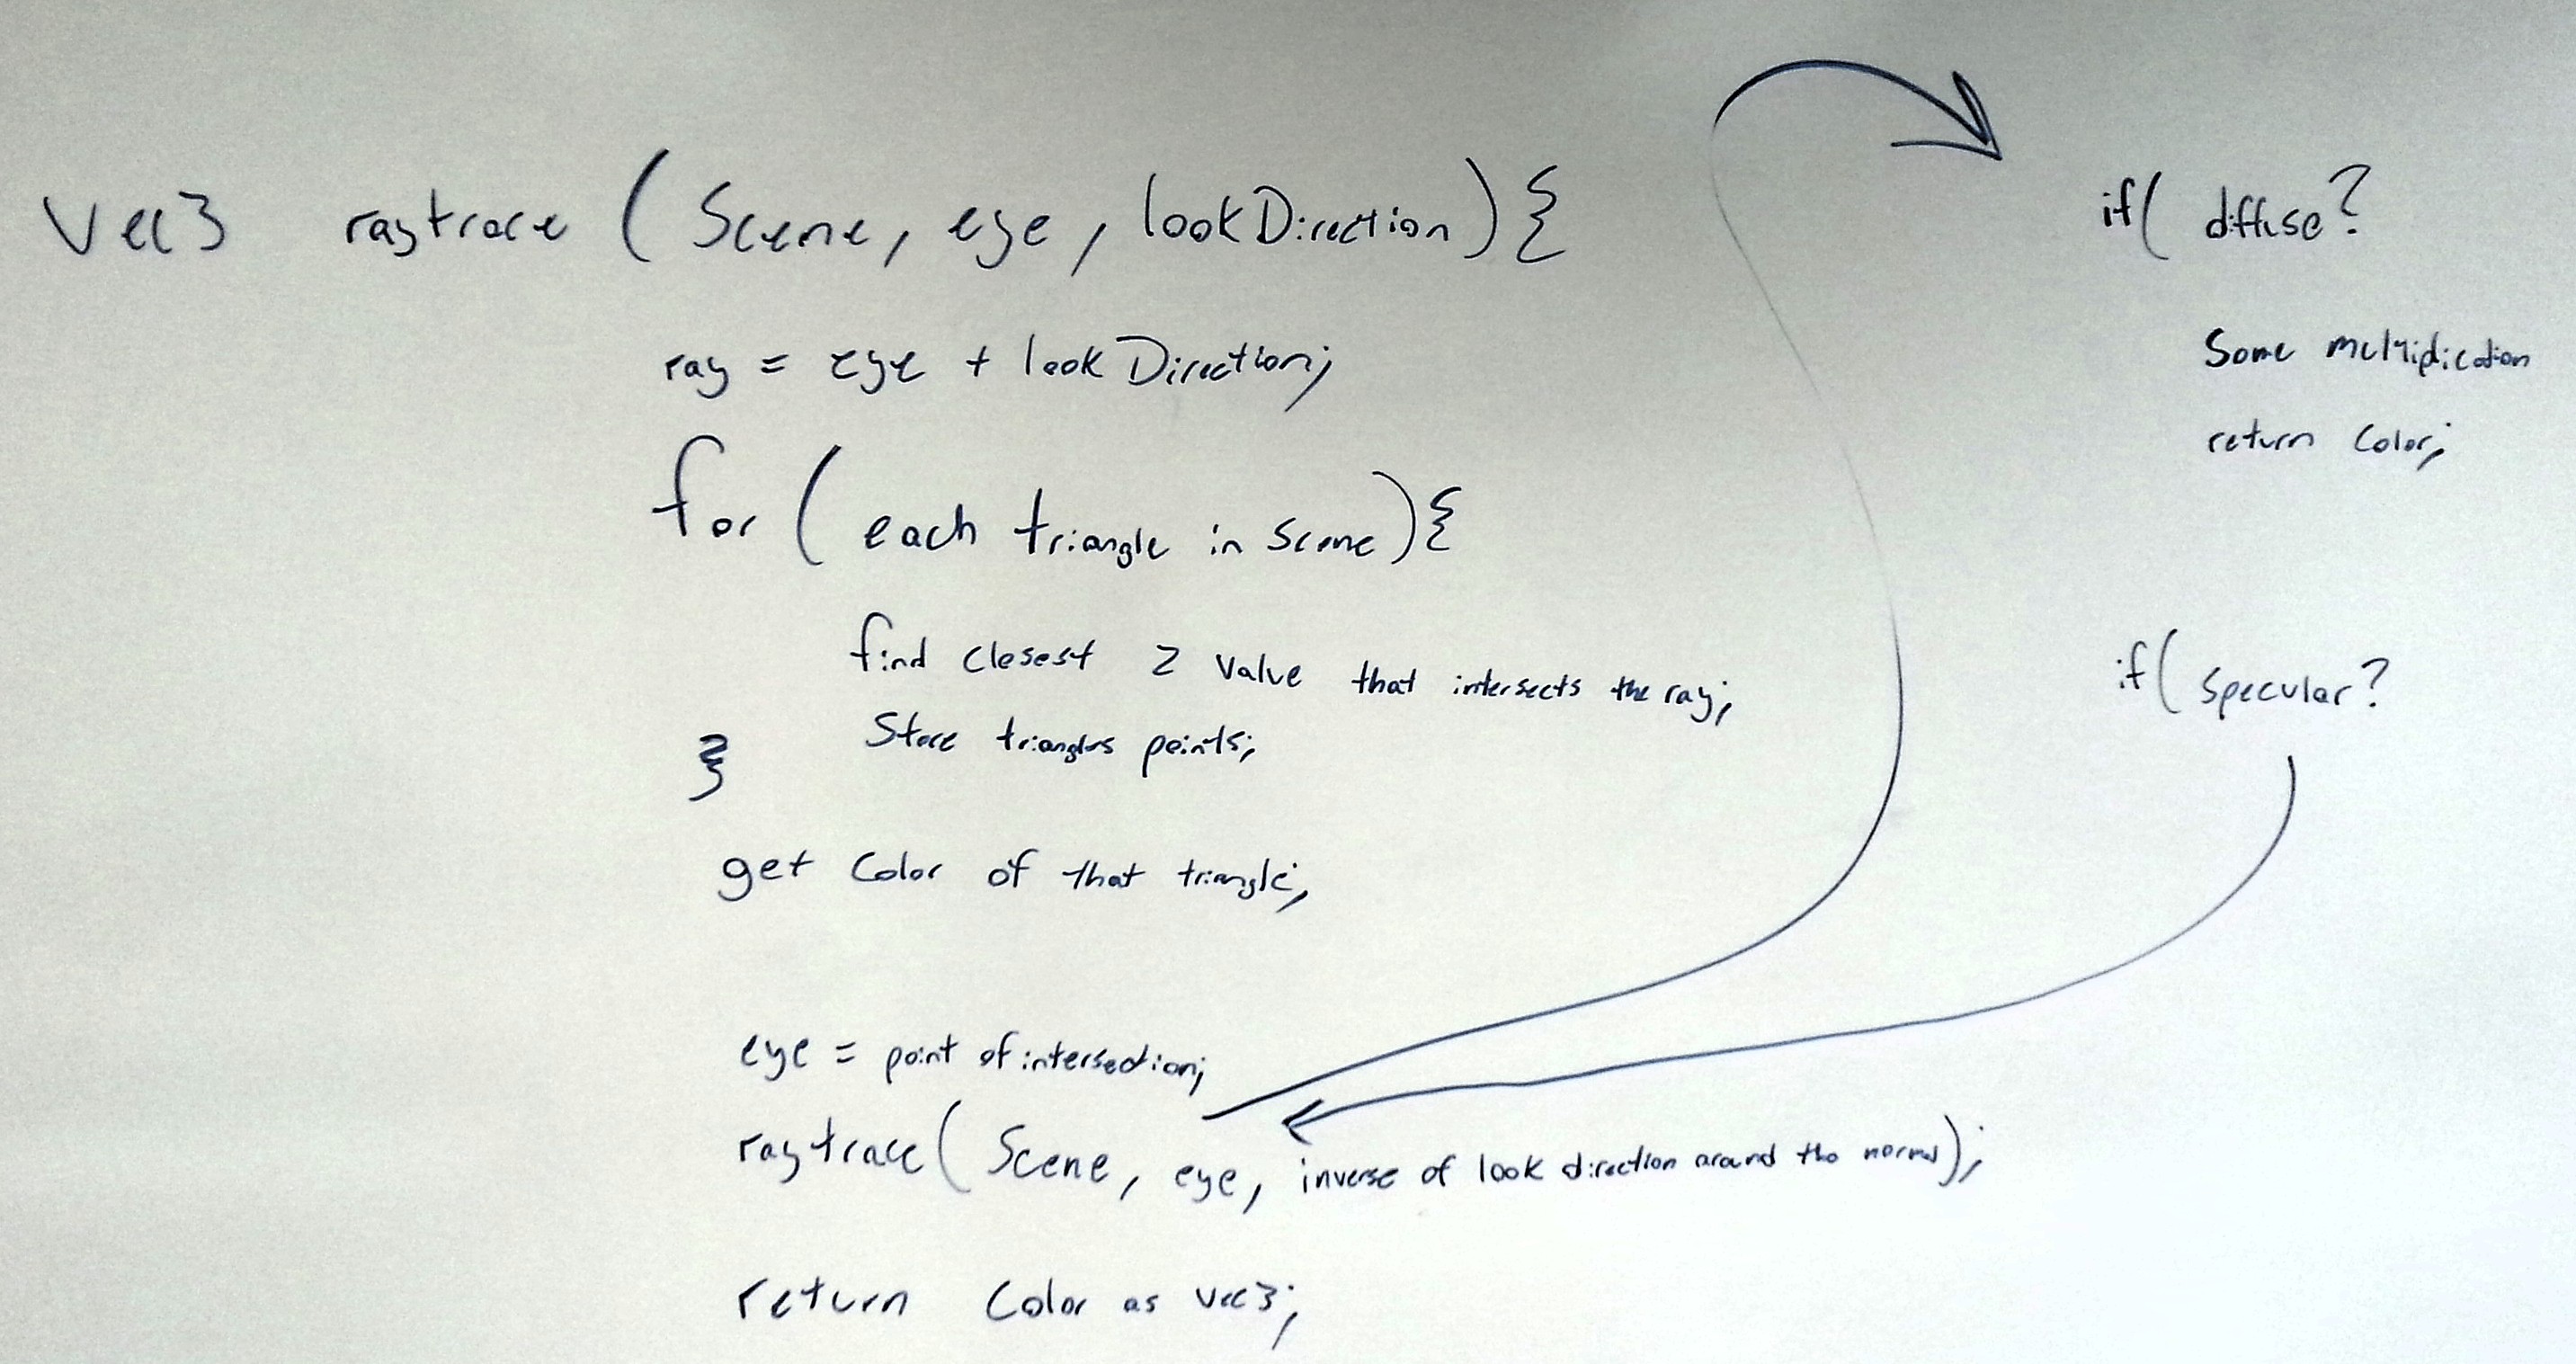 Vec3 raytrace (Scene, eye, lookDirection){
ray = eye + lookDirection;
for (each triangle in scene){
find closest z value that intersects the ray;
Store triangles points;
}
get color of that triangle;
eye = point of intersection;
raytrace(Scene, eye, inverse of look direction around the normal);
return Color as vec3;
if( diffuse?
Some multiplication
return color;
if( specular?